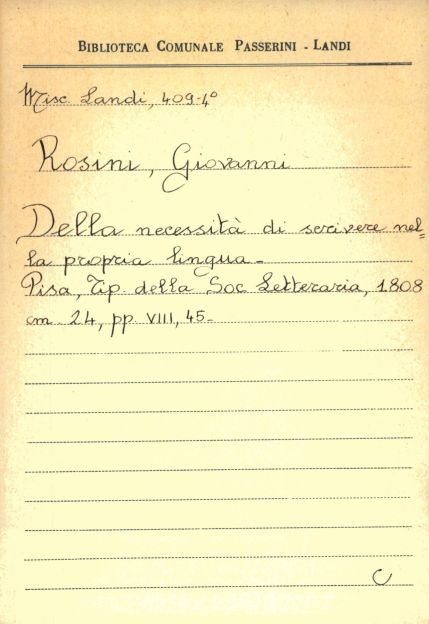 BIBLIOTECA COMUNALE PASSERINI - LANDI
Misc. Landi, 409-4°
Rosini, Giovanni
Della necessità di scrivere nel=
la propria lingua.
Pisa, Tip. della Soc. Letteraria, 1808
cm. 24, pp. VIII, 45.
C